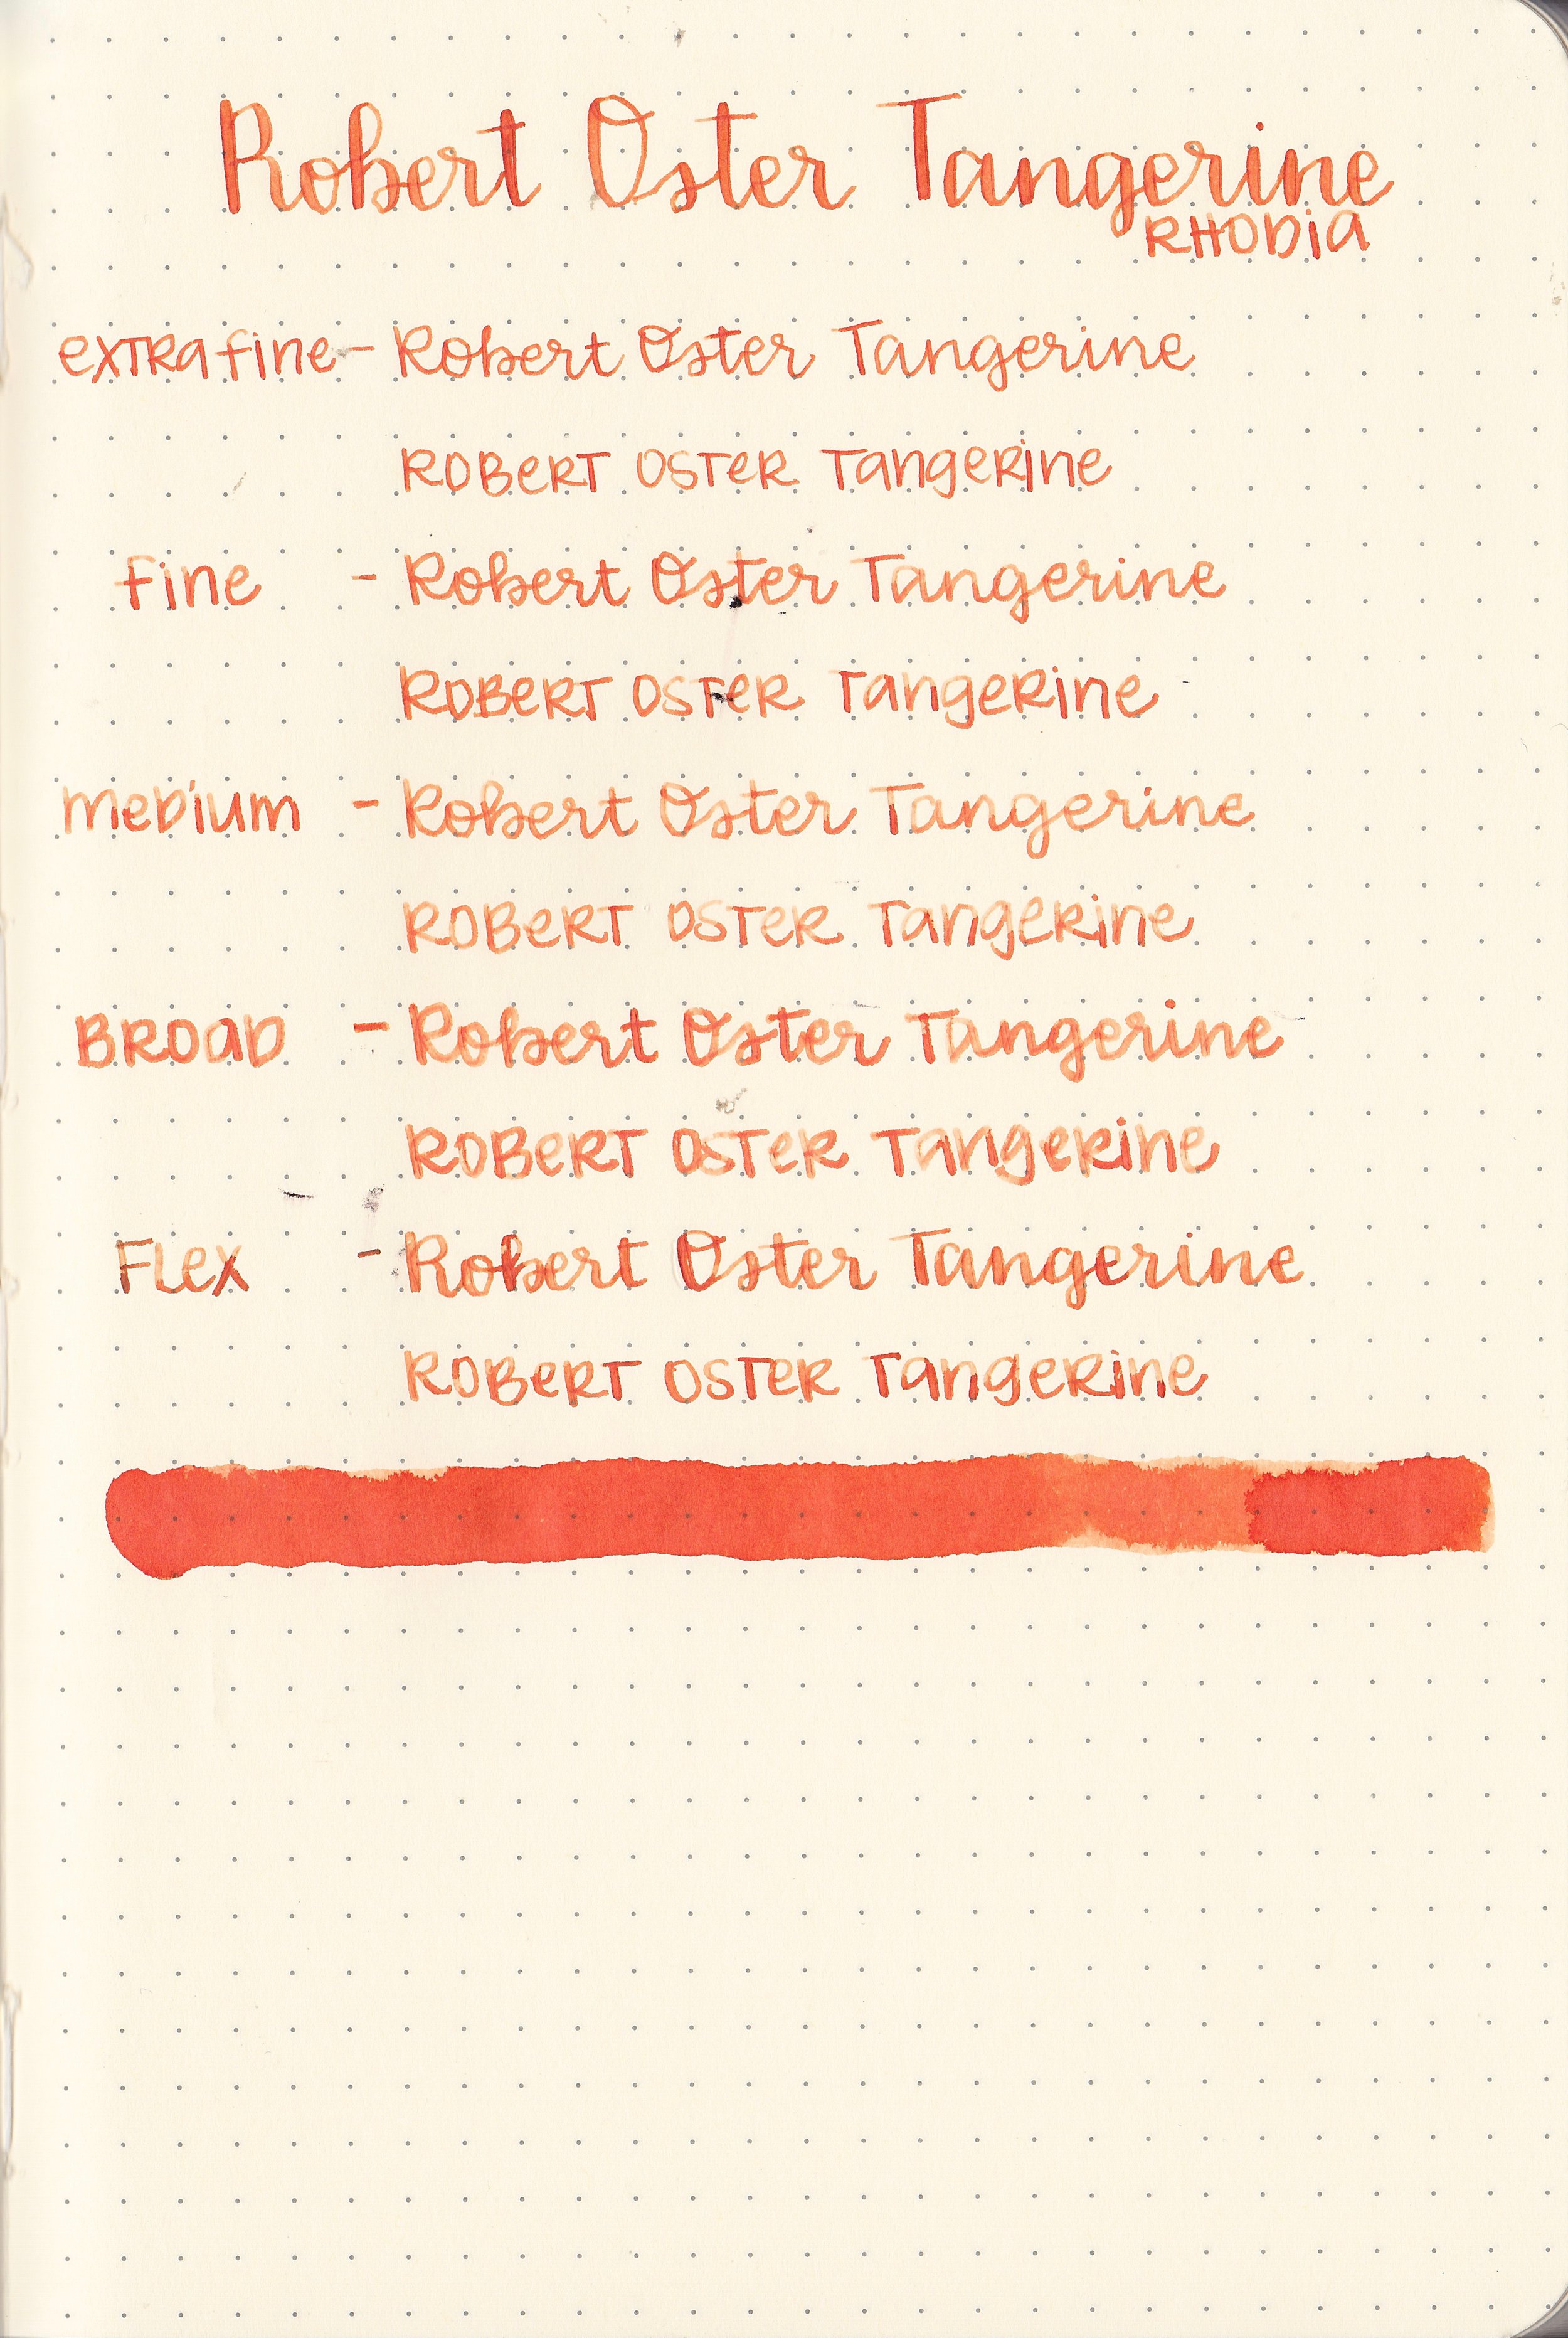 Robert Oster Tangerine
RHODIA
extra fine - Robert Oster Tangerine
ROBERT OSTER Tangerine
fine - Robert Oster Tangerine
ROBERT OSTER Tangerine
meDium - Robert Oster Tangerine
ROBERT OSTER Tangerine
BROAD - Robert Oster Tangerine
ROBERT OSTER Tangerine
FLex - Robert Oster Tangerine
ROBERT OSTER Tangerine